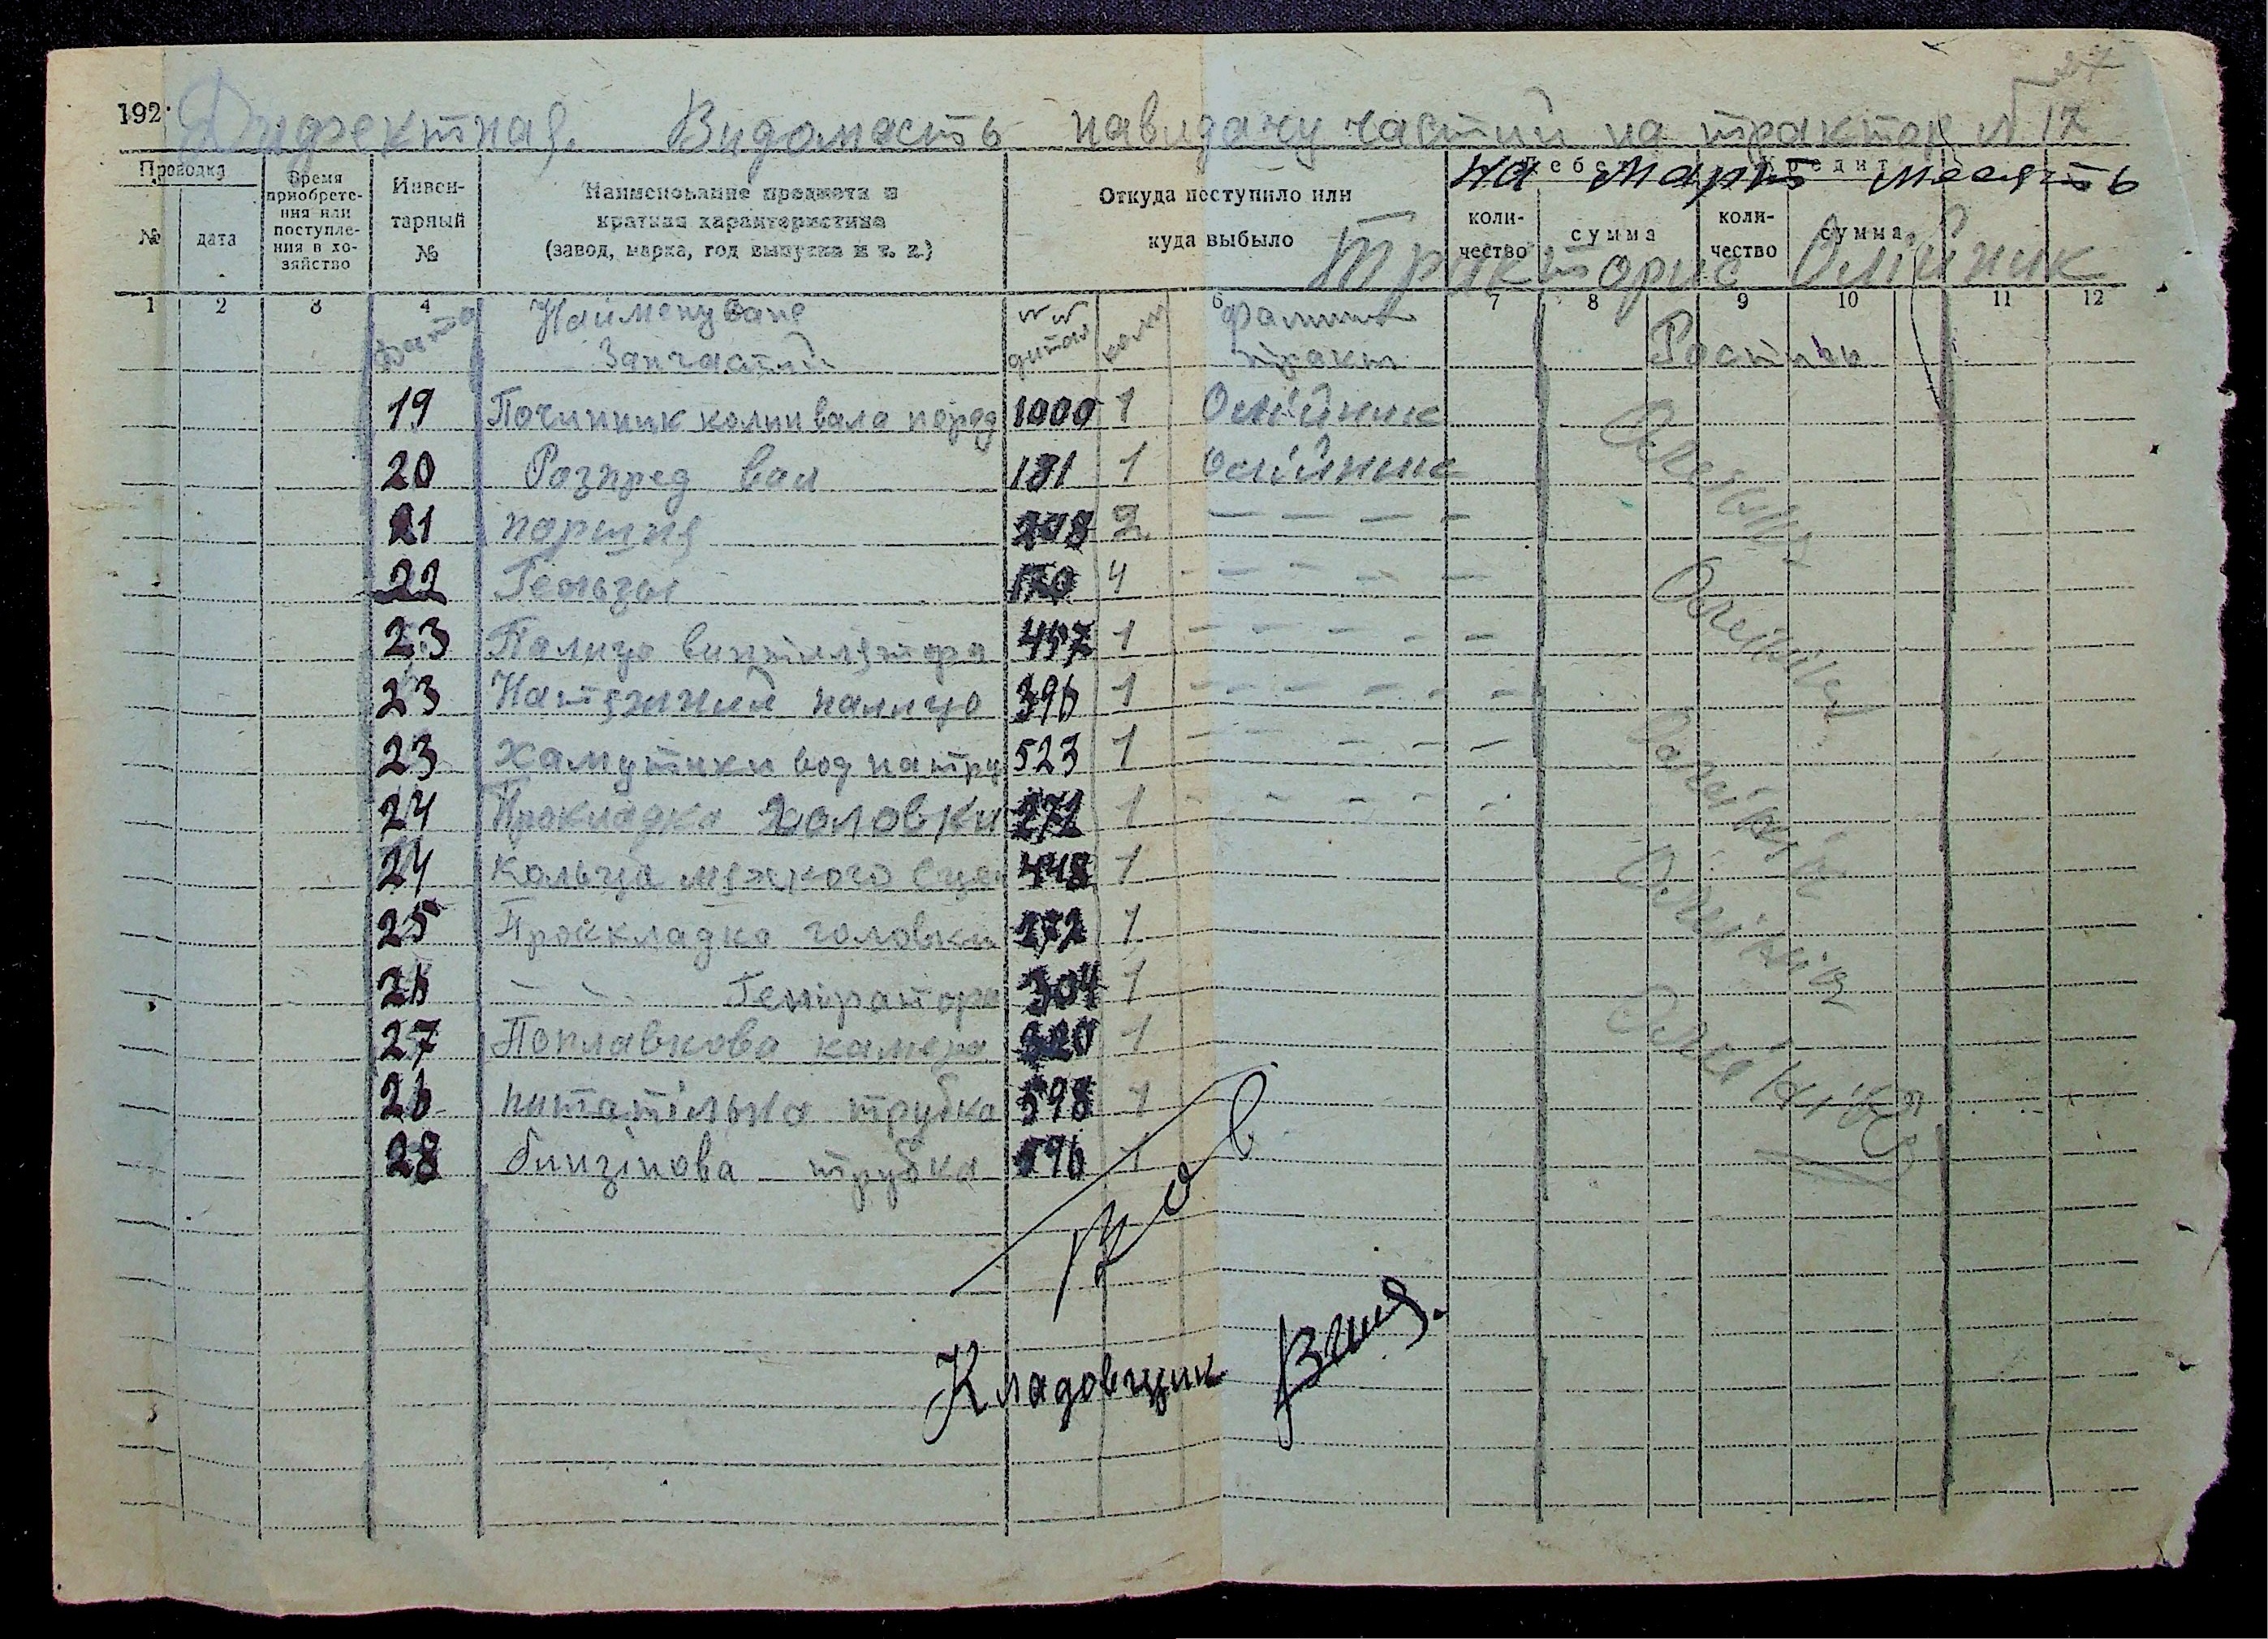 192
Дифектная. Видомасть навидачу частий на трактор № 17
на Март месять
Тракторис Олійник
Проводка
№
дата
Время приобрете-
ния или
поступле-
ния в хо-
зяйство
Инвен-
тарный
№
Наименование предмета и
краткая характеристика
(завод, марка, год выпуска и т. д.)
Откуда поступило или
куда выбыло
Дебет
Кредит
коли-
чество
сумма
коли-
чество
сумма
1 2 3 4 6 7 8 9 10 11 12
Дата
Найменуване
Запчастий
№№
дитал
кол
Фамили
тракт
Роспись
19 Почипник колинвала перед 1000 1 Олійник
20 Розпред вал 181 1 Олійник
21 поршня 208 2 — — — —
22 Гельзы 170 4 — — — — — —
23 Палицо винтилятора 457 1 — — — — —
23 Натяжний палицо 396 1 — — — — — —
23 Хамутики вод патру 523 1 — — — — —
24 Прокладка головки 272 1 — — — — — —
24 Кольца мяхкого сцеп 448 1
25 Проккладка головки 272 1
26 — — Геніратора 304 1
27 Поплавкова камера 220 1
26 питатільна трубка 598 1
28 бинзінова трубка 596 1
Олейник
Олейник
Олейник
Олейник
Кладовщик